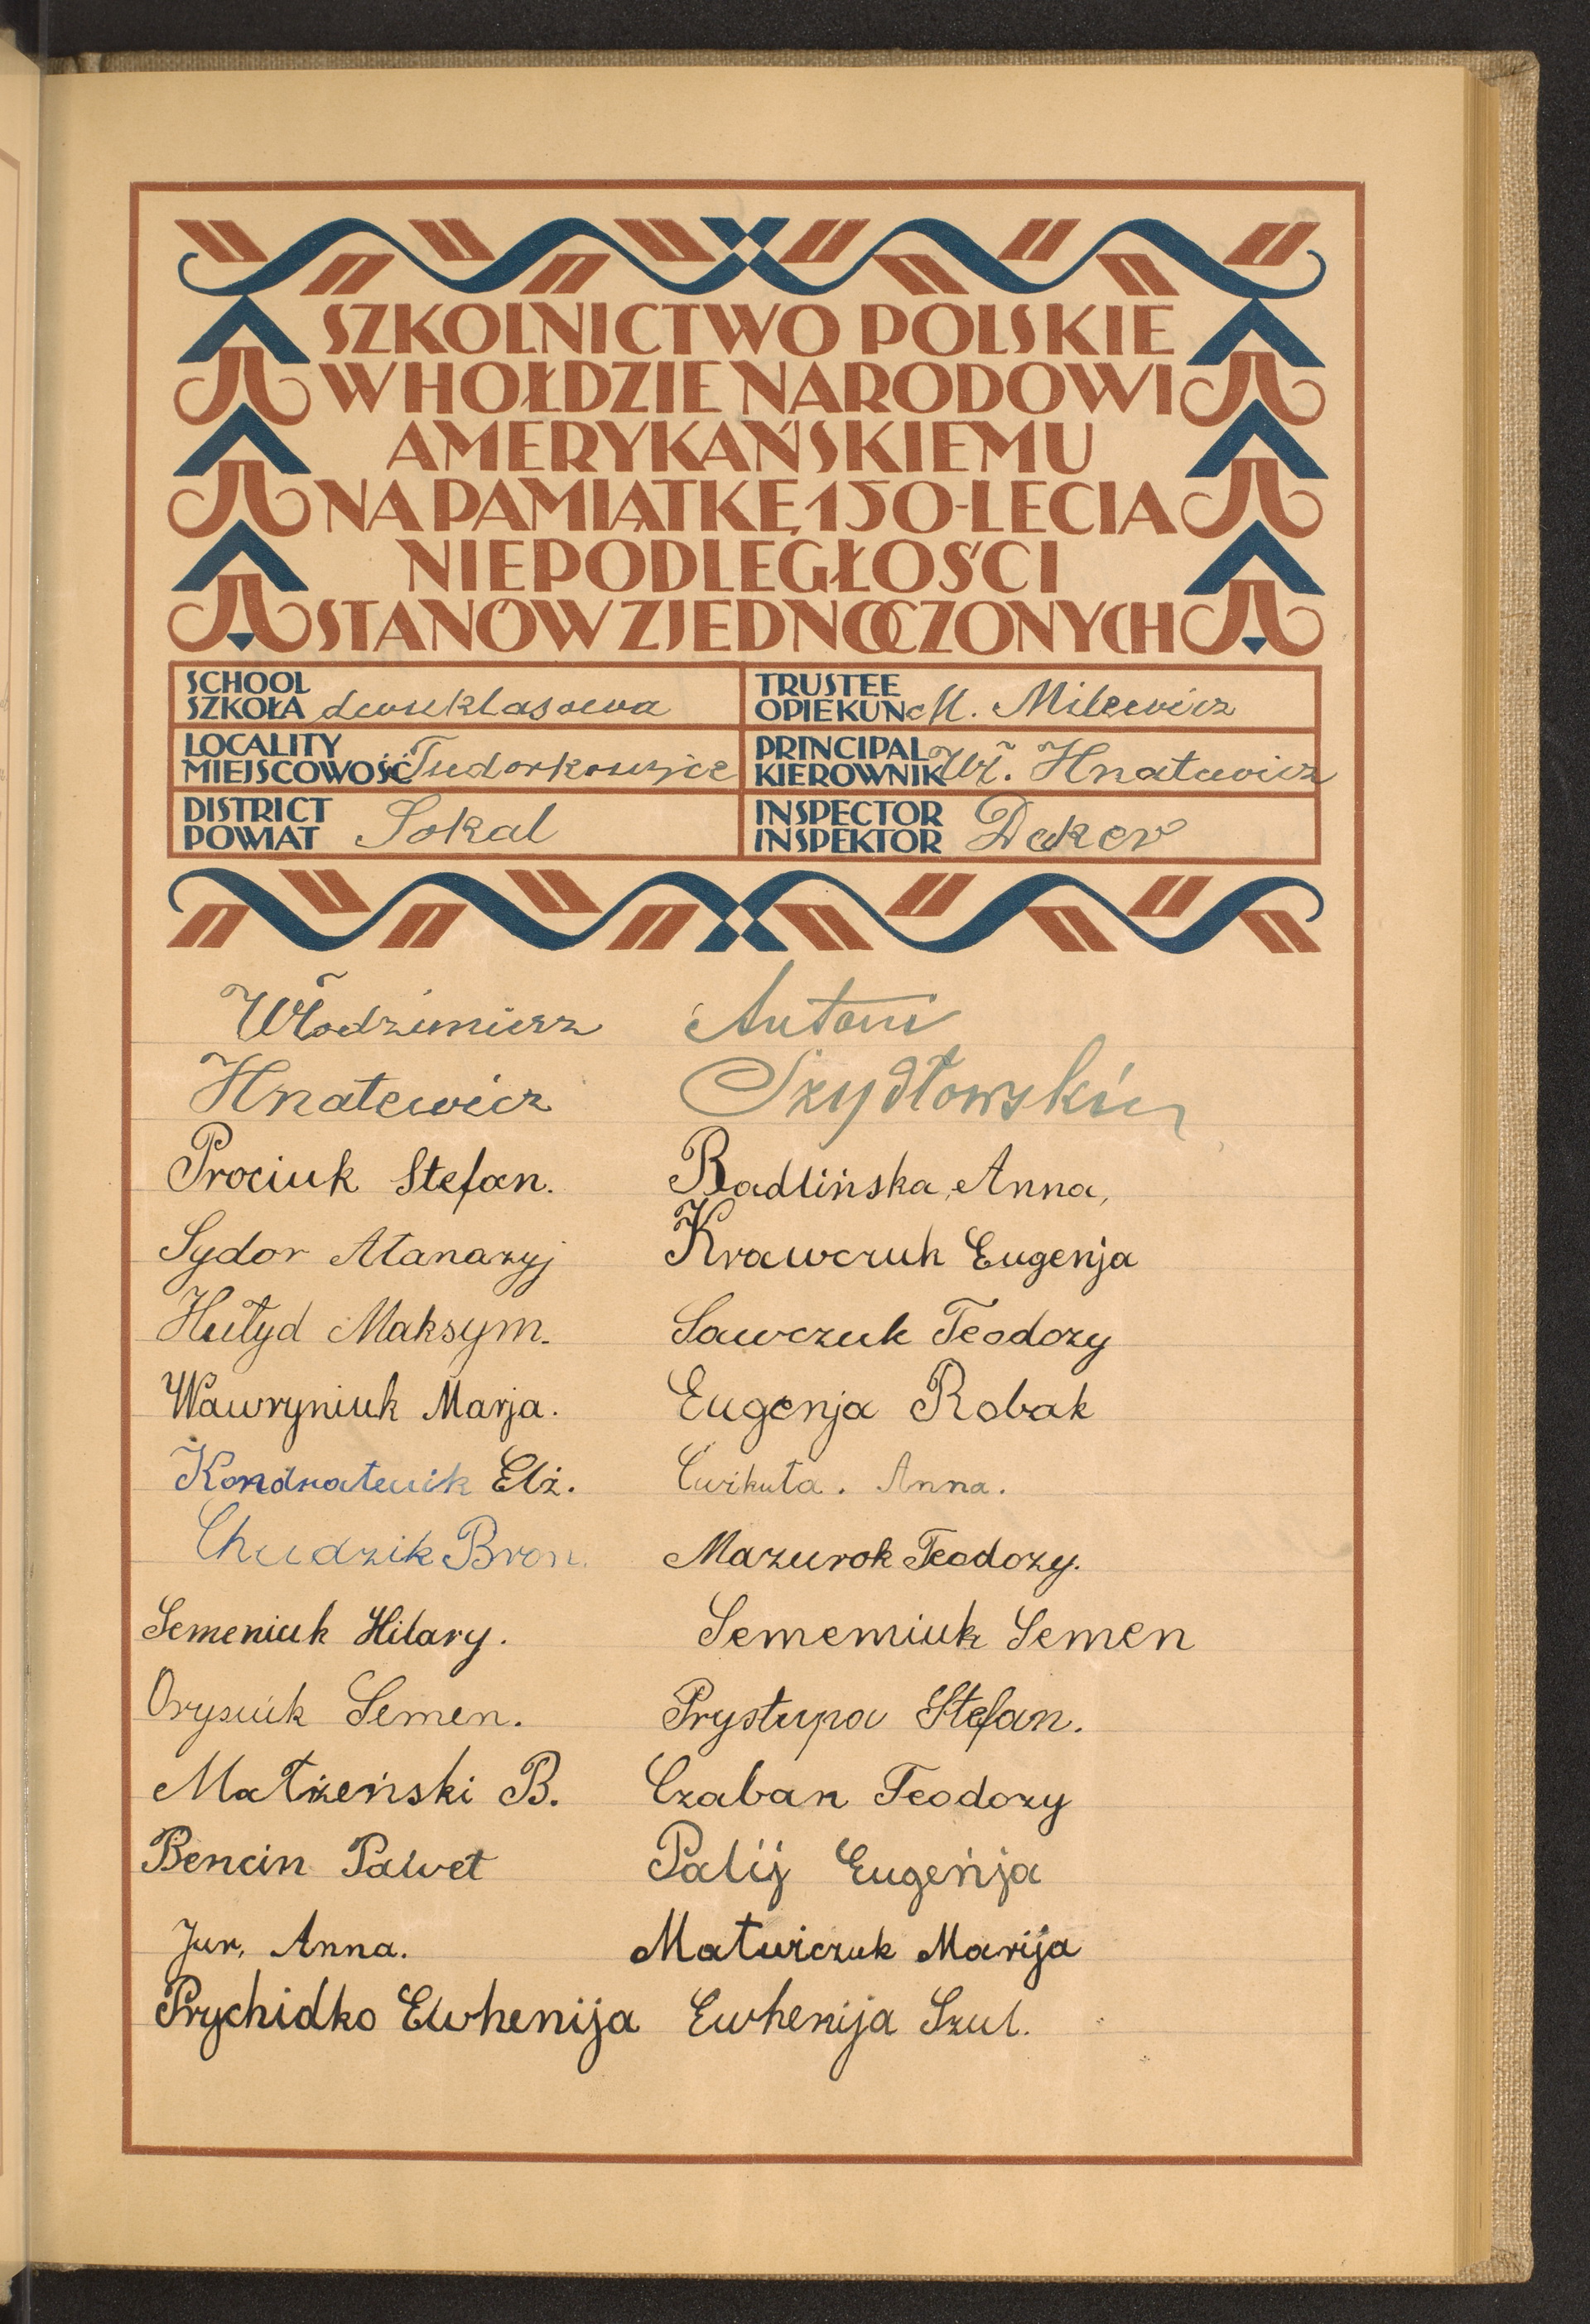 SZKOLNICTWO POLSKIE
W HOŁDZIE NARODOWI
AMERYKAŃSKIEMU
NA PAMIĄTKĘ 150-LECIA
NIEPODLEGŁOŚCI
STANÓW ZJEDNOCZONYCH
SCHOOL
SZKOŁA dwuklasowa
TRUSTEE
OPIEKUN M. Milewicz
LOCALITY
MIEJSCOWOŚĆ Tudorkowice
PRINCIPAL
KIEROWNIK Wł. Hnatewicz
DISTRICT
POWIAT Sokal
INSPECTOR
INSPEKTOR Deker
Włodzimierz
Hnatewicz
Prociuk Stefan.
Sydor Atanazyj
Hułyd Maksym.
Wawryniuk Marja.
Kondratiuk Elż.
Chudzik Bron.
Semeniuk Hilary.
Orysiuk Semen.
Małżeński B.
Bencin Paweł
Jur, Anna.
Prychidko Ewhenija
Antoni
Szydłowski
Radlińska, Anna,
Krawczuk Eugenja
Sawczuk Teodozy
Eugenja Robak
Ćwikuła. Anna.
Mazurok Teodozy.
Sememiuk Semen
Prystupa Stefan.
Czaban Teodozy
Palij Eugenja
Matwiczuk Marija
Ewhenija Szul.